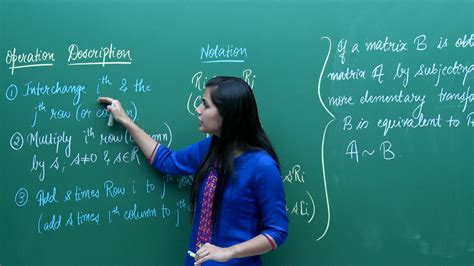 Operation Description Notation
① Interchange ith & the
jth row (or column)
② Multiply ith row (column)
by s, s≠0 & s∈R
③ Add s times Row i to j
(add s times ith column to jth
Ri
Ri
s Ri
s Li)
If a matrix B is obt
matrix A by subjectin
more elementary transfo
B is equivalent to
A ~ B